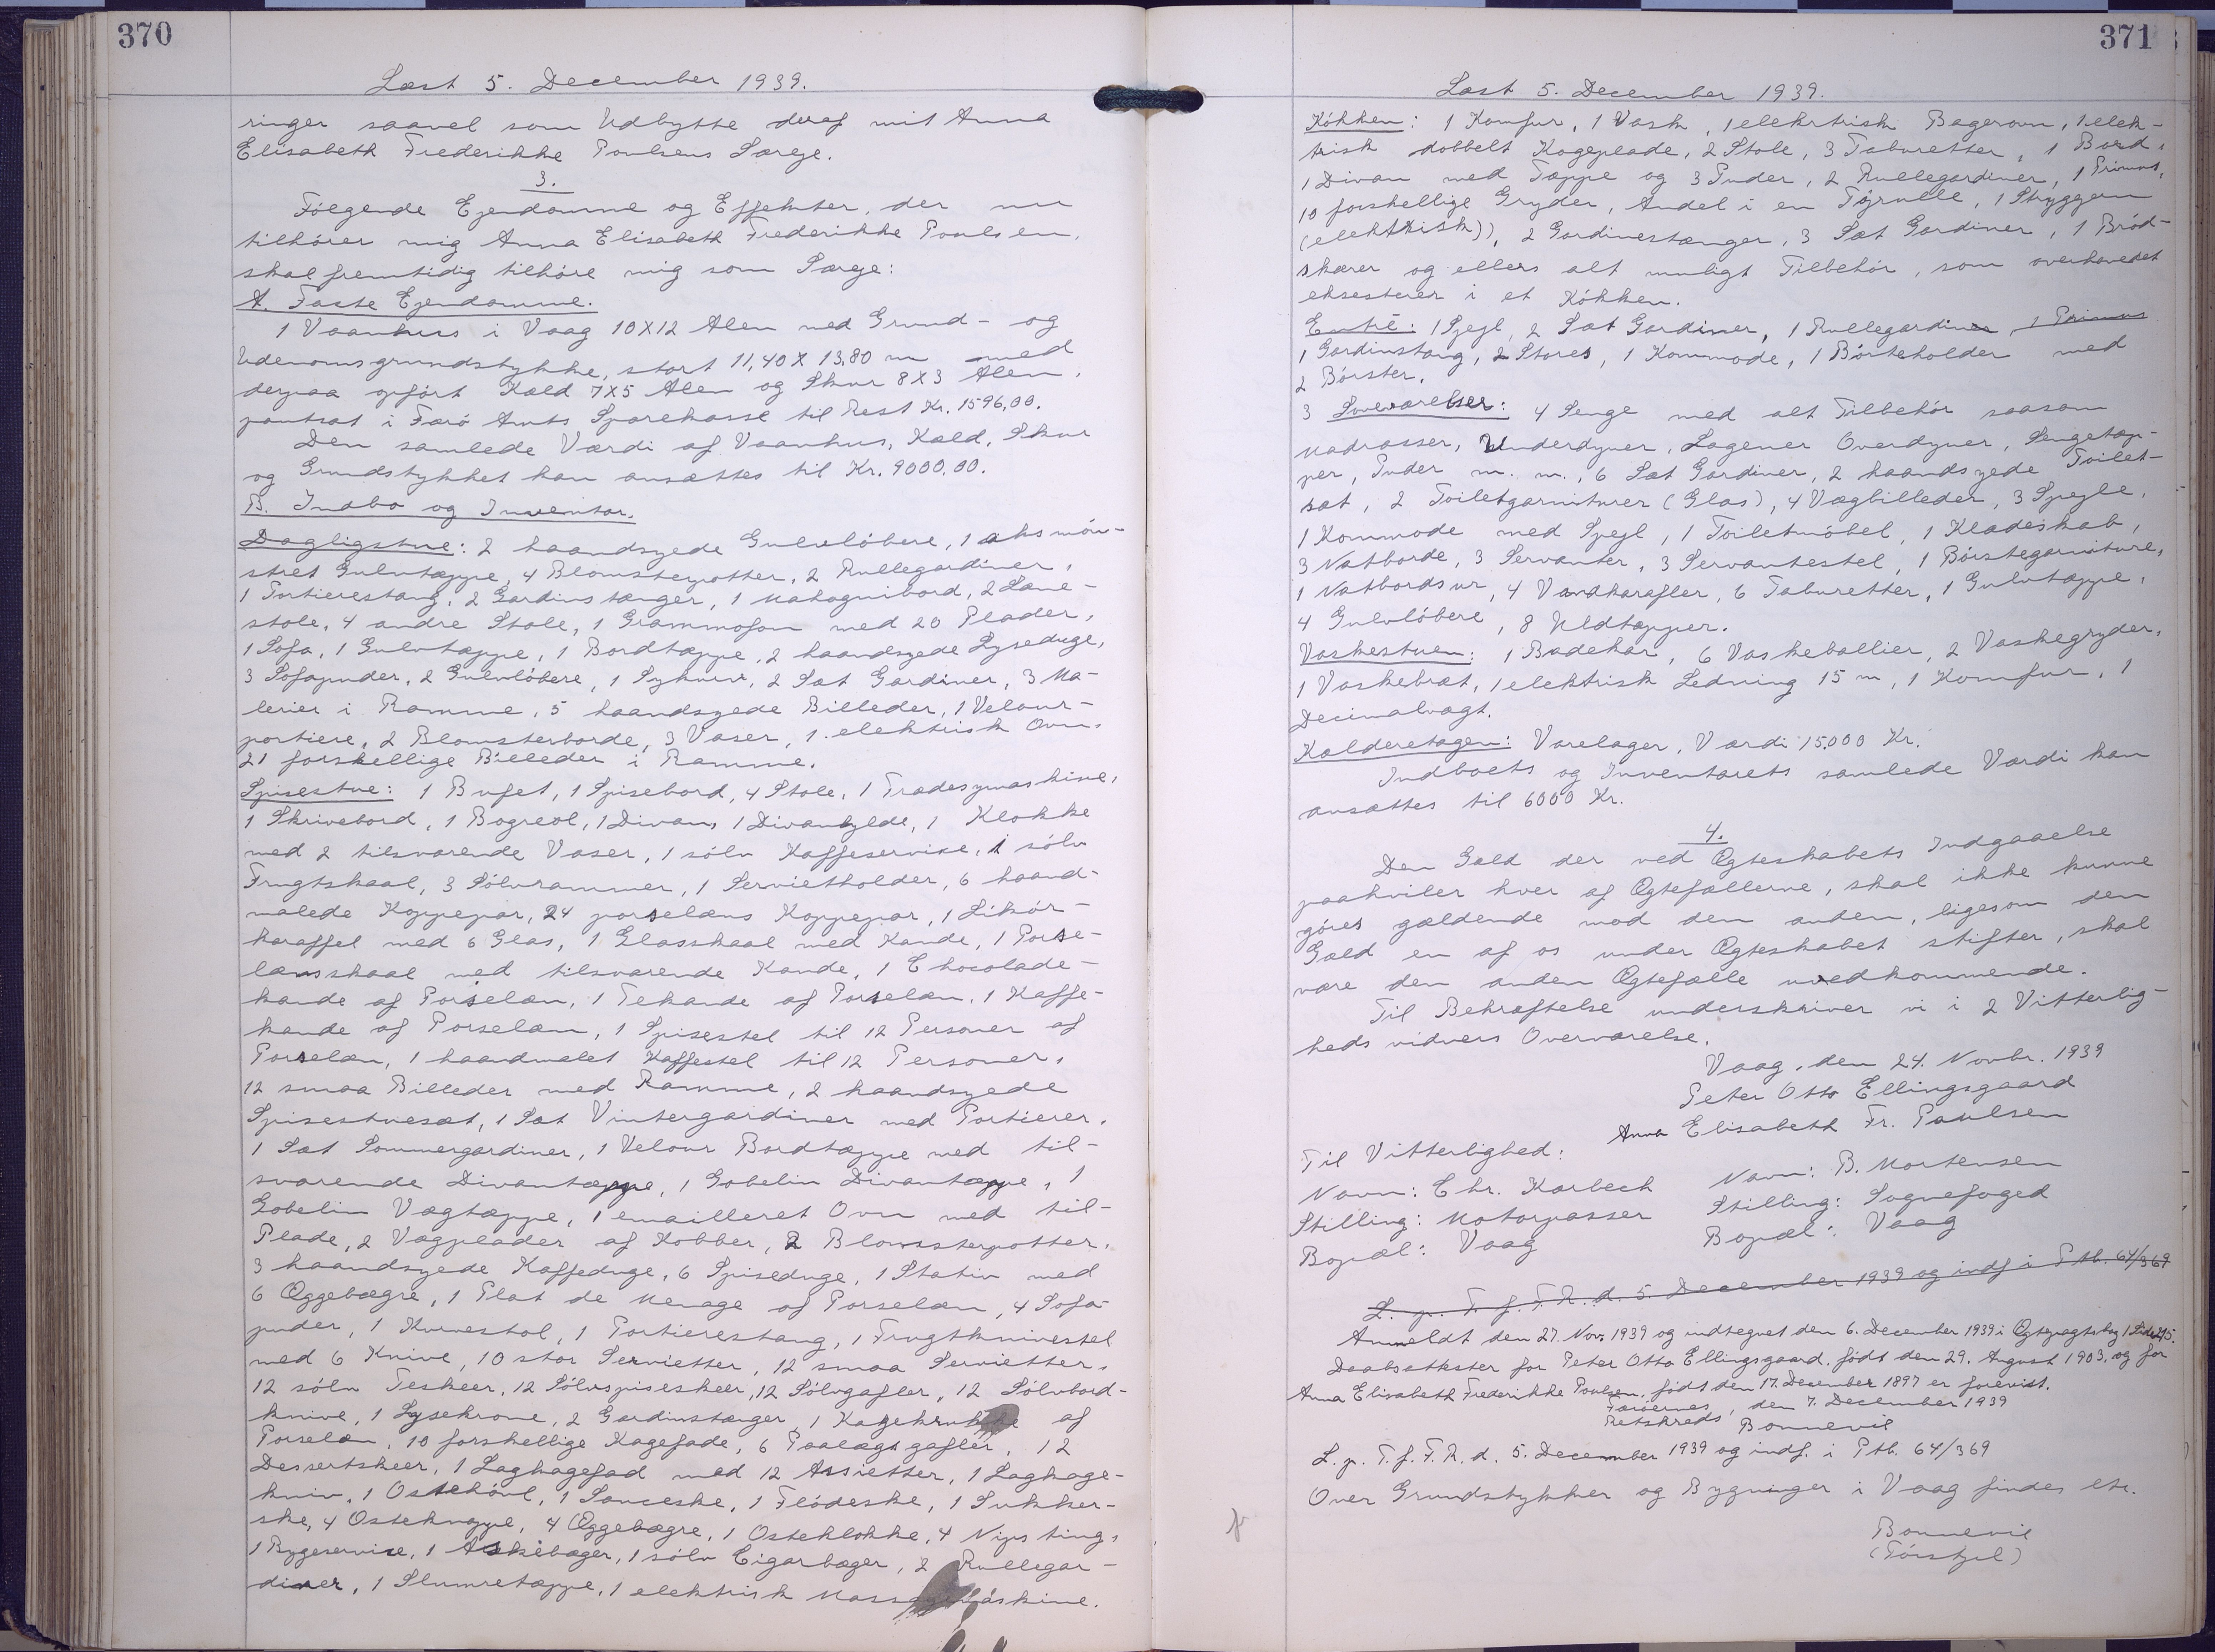 370
Læst 5. December 1939.
ringer saavel som Udbytte deraf mit Anna
Elisabeth Frederikke Poulsens Særeje.
3.
Følgende Ejendomme og Effekter, der nu
tilhører mig Anna Elisabeth Frederikke Poulsen,
skal fremtidig tilhøre mig som Særeje:
A. Faste Ejendomme.
1 Vaanhus i Vaag 10X12 Alen med Grund- og
Udenomsgrundstykke, stort 11,40 X 13,80 m med
derpaa opført Kæld 7X5 Alen og Skur 8X3 Alen,
pantsat i Færø Amts Sparekasse til Rest Kr. 1596,00.
Den samlede Værdi af Vaanhus, Kæld, Skur
og Grundstykket kan ansættes til Kr. 9000.00.
B. Indbo og Inventar.
Dagligstue: 2 haandsyede Gulvløbere, 1 aksmøn-
stret Gulvtæppe, 4 Blomsterpotter, 2 Rullegardiner,
1 Portierestang, 2 Gardinstænger, 1 Mahognibord, 2 Læne-
stole, 4 andre Stole, 1 Grammofon med 20 Plader,
1 Sofa, 1 Gulvtæppe, 1 Bordtæppe, 2 haandsyede Lyseduge,
3 Sofapuder, 2 Gulvløbere, 1 Sykurv, 2 Sæt Gardiner, 3 Ma-
lerier i Ramme, 5 haandsyede Billeder, 1 Velour-
portiere, 2 Blomsterborde, 3 Vaser, 1 elektrisk Ovn,
21 forskellige Billeder i Ramme.
Spisestue: 1 Bufet, 1 Spisebord, 4 Stole, 1 Trædesymaskine,
1 Skrivebord, 1 Bogreol, 1 Divan, 1 Divanhylde, 1 Klokke
med 2 tilsvarende Vaser, 1 sølv Kaffeservice, 1 sølv
Frugtskaal, 3 Sølvrammer, 1 Servietholder, 6 haand-
malede Koppepar, 24 porselæns Koppepar, 1 Likør-
karaffel med 6 Glas, 1 Glasskaal med Kande, 1 Porse-
lænsskaal med tilsvarende Kande, 1 Chocolade-
kande af Porselæn, 1 Tekande af Porselæn, 1 Kaffe-
kande af Porselæn, 1 Spisestel til 12 Personer af
Porselæn, 1 haandmalet Kaffestel til 12 Personer,
12 smaa Billeder med Ramme, 2 haandsyede
Spisestuesæt, 1 Sæt Vintergardiner med Portierer,
1 Sæt Sommergardiner, 1 Velour Bordtæppe med til-
svarende Divantæppe, 1 Gobelin Divantæppe, 1
Gobelin Vægtæppe, 1 emailleret Ovn med til-
Plade, 2 Vægplader af Kobber, 2 Blomsterpotter,
3 haandsyede Kaffeduge, 6 Spiseduge, 1 Stativ med
6 Æggebægre, 1 Plat de Menage af Porselæn, 4 Sofa-
puder, 1 Kurvestol, 1 Portierestang, 1 Frugtknivestel
med 6 Knive, 10 stor Servietter, 12 smaa Servietter,
12 sølv Teskeer, 12 Sølvspiseskeer, 12 Sølvgafler, 12 Sølvbord-
knive, 1 Lysekrone, 2 Gardinstænger, 1 Kagekrukke af
Porselæn, 10 forskellige Kagefade, 6 Paalægsgafler, 12
Dessertskeer, 1 Lagkagefad med 12 Assietter, 1 Lagkage-
kniv, 1 Ostehøvl, 1 Sauceske, 1 Flødeske, 1 Sukker-
ske, 4 Osteknappe, 4 Æggebægre, 1 Osteklokke, 4 Nips ting,
1 Rygeservice, 1 Askebæger, 1 sølv Cigarbæger, 2 Rullegar-
diner, 1 Slumretæppe, 1 elektrisk Massagemaskine.
371
Læst 5. December 1939.
Køkken: 1 Komfur, 1 Vask, 1 elektrisk Bageovn, 1 elek-
trisk dobbelt Kogeplade, 2 Stole, 3 Taburetter, 1 Bord,
1 Divan med Tæppe og 3 Puder, 2 Rullegardiner, 1 Primus,
10 forskellige Gryder, Andel i en Tøjrulle, 1 Strygejern
(elektrisk)), 2 Gardinestænger, 3 Sæt Gardiner, 1 Brød-
skærer og ellers alt muligt Tilbehør, som overhovedet
eksesterer i et Køkken.
Entré: 1 Spejl, 2 Sæt Gardiner, 1 Rullegardiner, 1 Primus
1 Gardinstang, 2 Stores, 1 Kommode, 1 Børsteholder med
2 Børster.
3 Soveværelser: 4 Senge med alt Tilbehør saasom
Madrasser, Underdyner, Lagener Overdyner, Sengetæp-
per, Puder m. m., 6 Sæt Gardiner, 2 haandsyede Toilet-
sæt, 2 Toiletgarniturer (Glas), 4 Vægbilleder, 3 Spejle,
1 Kommode med Spejl, 1 Toiletmøbel, 1 Klædeskab,
3 Natborde, 3 Servanter, 3 Servantestel, 1 Børstegarniture,
1 Natbordsur, 4 Vandkarafler, 6 Taburetter, 1 Gulvtæppe,
4 Gulvløbere, 8 Uldtæpper.
Vaskestuen: 1 Badekar, 6 Vaskeballier, 2 Vaskegryder,
1 Vaskebræt, 1 elektrisk Ledning 15 m, 1 Komfur, 1
Decimalvægt.
Kælderetagen: Varelager, Værdi 15.000 Kr.
Indboets og Inventarets samlede Værdi kan
ansættes til 6000 Kr.
4.
Den Gæld der ved Ægteskabets Indgaaelse
paahviler hver af Ægtefællerne, skal ikke kunne
gøres gældende mod den anden, ligesom den
Gæld en af os under Ægteskabet stifter, skal
være den anden Ægtefælle uvedkommende.
Til Bekræftelse underskriver vi i 2 Vitterlig-
heds vidners Overværelse.
Vaag, den 24. Novbr. 1939
Peter Otto Ellingsgaard
Anna Elisabeth Fr. Paulsen
Til Vitterlighed:
Navn: Chr. Karbech Navn: B. Mortensen
Stilling: Motorpasser Stilling: Sognefoged
Bopæl: Vaag Bopæl: Vaag
L. p. T. f. F. R. d. 5. December 1939 og indf i Ptb. 64/369
Anmeldt den 27. Nov. 1939 og indtegnet den 6. December 1939 i Ægtepagtsbog 1 Side 45.
Daabsattester for Peter Otto Ellingsgaard, født den 29. August 1903, og for
Anna Elisabeth Frederikke Poulsen, født den 17. December 1897 er forevist.
Færøernes Retskreds, den 7. December 1939
Bonnevie
L. p. T. f. F. R. d. 5. December 1939 og indf. i Ptb. 64/369
Over Grundstykker og Bygninger i Vaag findes etc.
Bonnevie